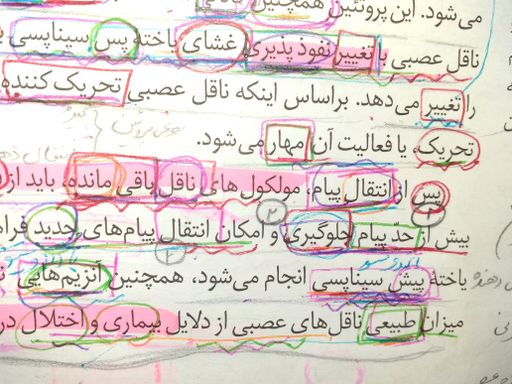 می‌شود. این پروتئین همچنین
ناقل عصبی با تغییر نفوذپذیری غشای یاخته پس سیناپسی
را تغییر می‌دهد. براساس اینکه ناقل عصبی تحریک کننده
تحریک، یا فعالیت آن مهار می‌شود.
پس از انتقال پیام، مولکول‌های ناقل باقی مانده، باید از
بیش از حدّ پیام جلوگیری و امکان انتقال پیام‌های جدید فرا
یاخته پیش سیناپسی انجام می‌شود، همچنین آنزیم‌هایی
میزان طبیعی ناقل‌های عصبی از دلایل بیماری و اختلال در